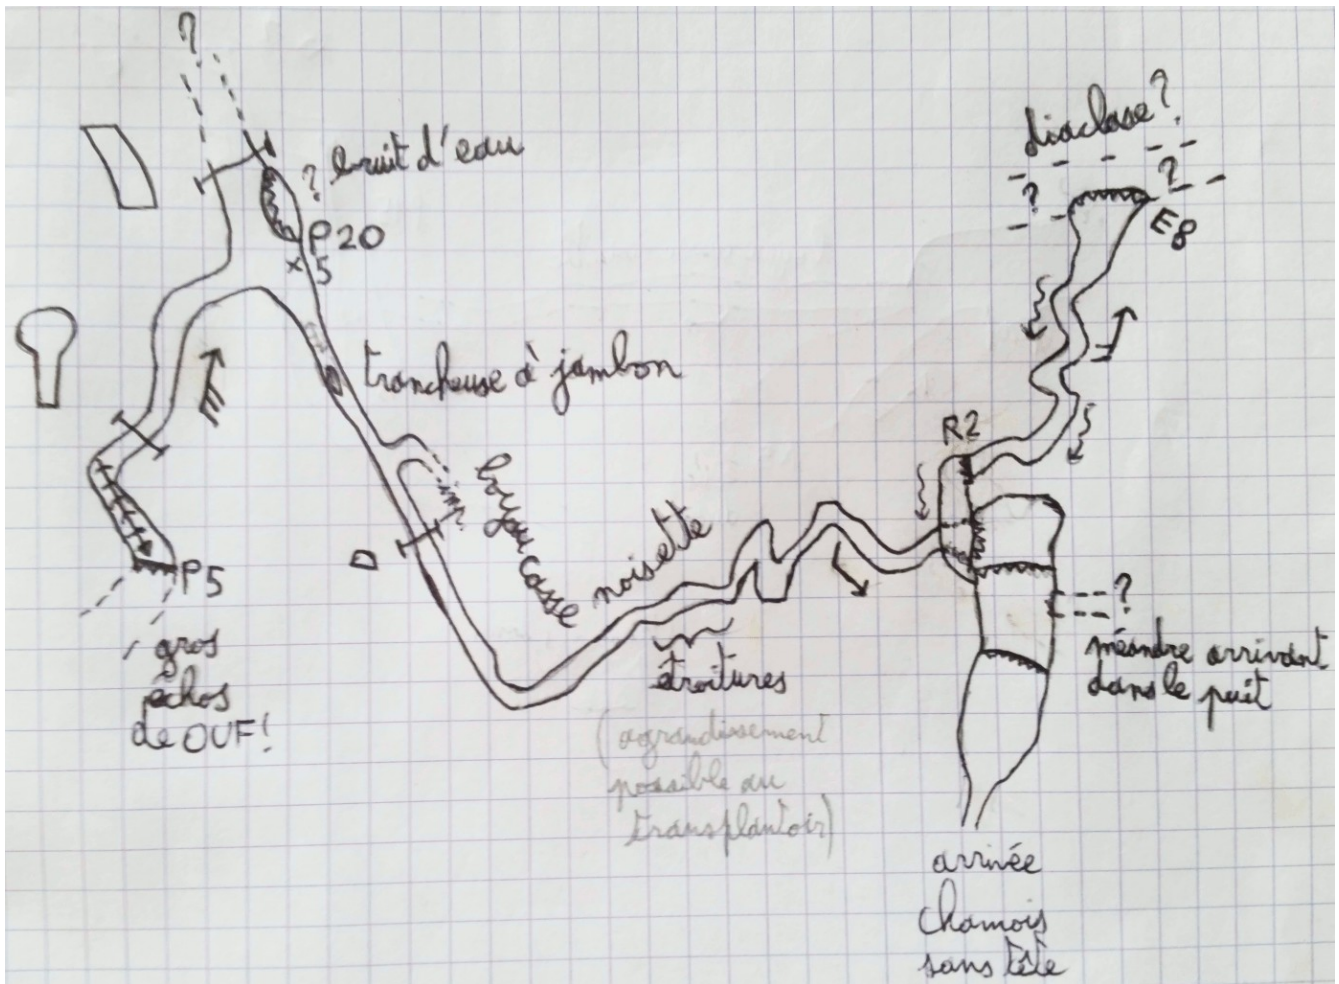 ?
? bruit d'eau
P20
5
trancheuse à jambon
imp.
boyau casse noisette
P5
gros
échos
de OUF!
étroitures
(agrandissement
possible au
transplantoir)
diaclase?
?
?
E8
R2
?
méandre arrivant
dans le puit
arrivée
chamois
sans tête